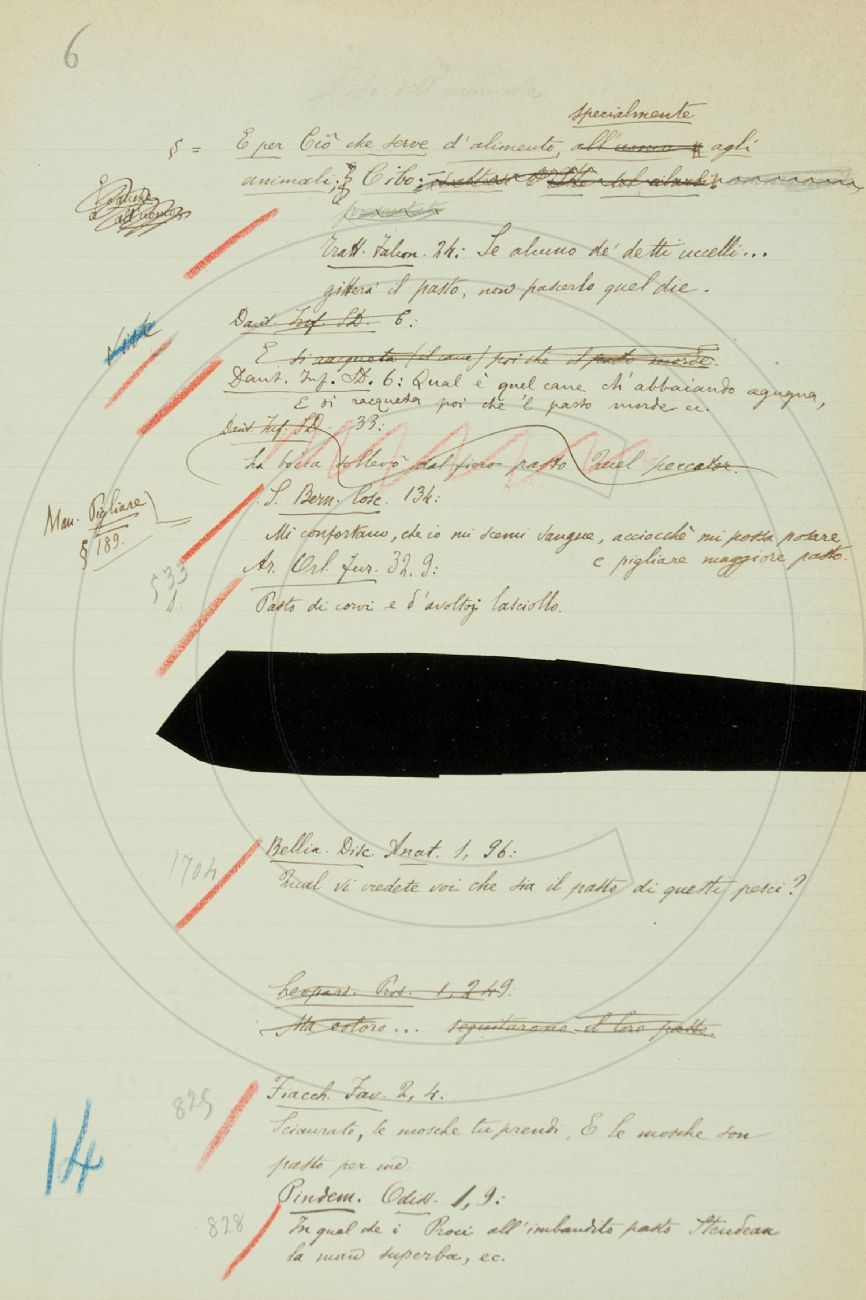 6
specialmente
§ = E per Ciò che serve d'alimento, all'uomo agli
animali; Cibo:
Tratt. Falcon. 24: Se alcuno de' detti uccelli...
gitterà il pasto, non pascerlo quel die.
Dant. Inf. SD. 6:
E si racqueta (il cane) poi che il pasto morde.
Dant. Inf. SD. 6: Qual è quel cane ch'abbaiando agugna,
E si racqueta poi che 'l pasto morde ec.
Dant. Inf. SD. 33:
La bocca sollevò dal fiero pasto Quel peccator.
Man. Pigliare
§ 189.
S. Bern. Cosc. 134:
Mi confortano, che io mi scemi sangue, acciocchè mi possa posare
e pigliare maggiore pasto.
§ 33
Ar. Orl. Fur. 32, 9:
Pasto di corvi e d'avoltoj lasciollo.
1704
Bellin. Disc. Anat. 1, 96:
Qual vi credete voi che sia il pasto di questi pesci?
Leopard. Pros. 1, 249:
Ma coloro... seguitarono il loro pasto.
825
Fiacch. Fav. 2, 4:
Sciaurato, le mosche tu prendi, E le mosche son
pasto per me
14
Pindem. Odiss. 1, 9:
828
In qual che i Proci all'imbandito pasto Stendean
la man superba, ec.